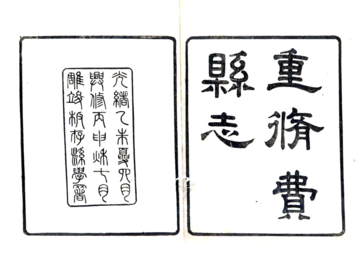 重脩費
縣志
光緒乙未夏六月
興修丙申秋七月
雕竣板存縣學署